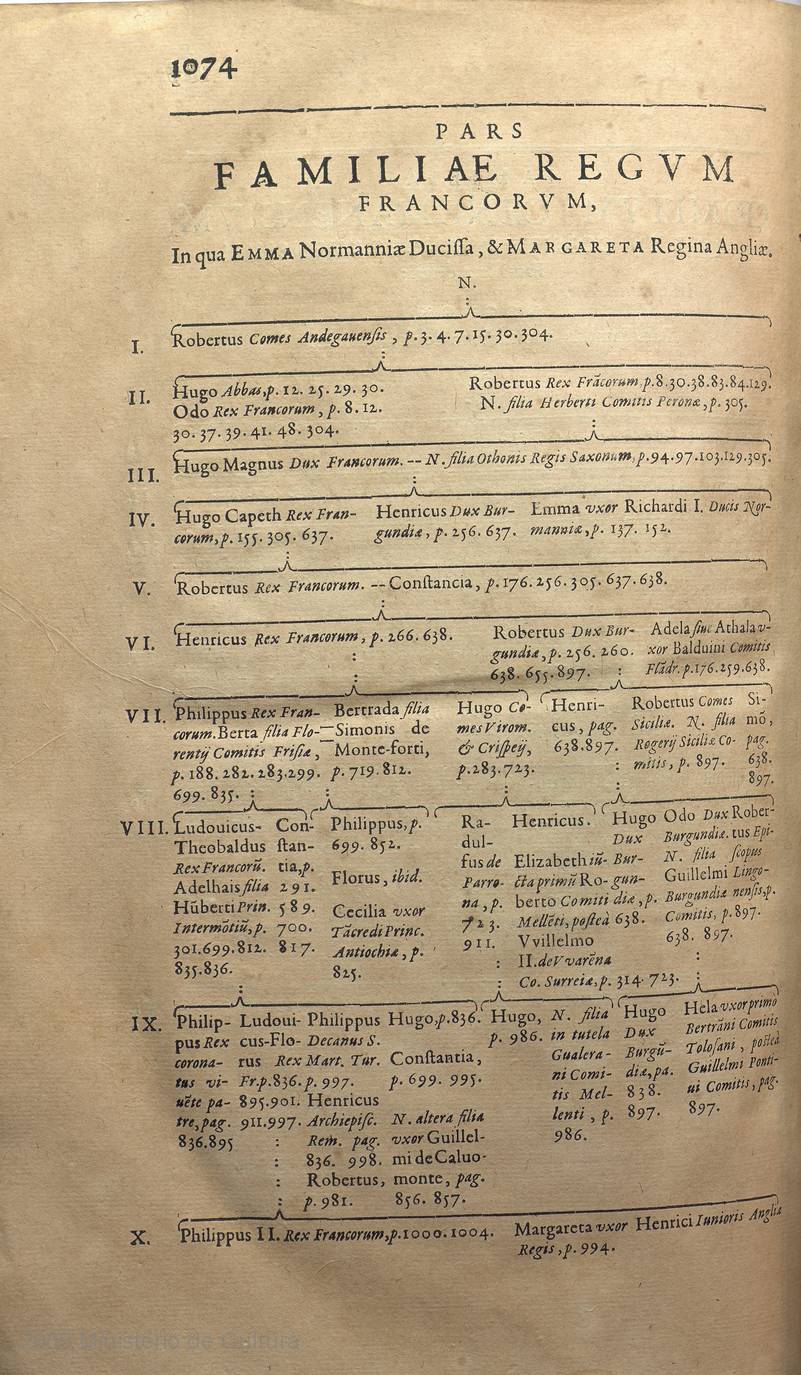 1074
PARS
FAMILIAE REGVM
FRANCORVM,
In qua EMMA Normanniæ Ducissa, & MARGARETA Regina Angliæ.
N.
I. Robertus Comes Andegauensis, p. 3. 4. 7. 15. 30. 304.
II. Hugo Abbas, p. 12. 25. 29. 30.
Odo Rex Francorum, p. 8. 12.
30. 37. 39. 41. 48. 304.
Robertus Rex Frãcorum, p. 8. 30. 38. 83. 84. 129.
N. filia Herberti Comitis Peronæ, p. 305.
III. Hugo Magnus Dux Francorum. -- N. filia Othonis Regis Saxonum, p. 94. 97. 103. 129. 305.
IV. Hugo Capeth Rex Fran-
corum, p. 155. 305. 637.
Henricus Dux Bur-
gundiæ, p. 256. 637.
Emma vxor Richardi I. Ducis Nor-
manniæ, p. 137. 152.
V. Robertus Rex Francorum. -- Constancia, p. 176. 256. 305. 637. 638.
VI. Henricus Rex Francorum, p. 266. 638.
Robertus Dux Bur-
gundiæ, p. 256. 260.
638. 655. 897.
Adela siue Athala v-
xor Balduini Comitis
Flãdr. p. 176. 259. 638.
VII. Philippus Rex Fran-
corum. Berta filia Flo-
rentij Comitis Frisiæ,
p. 188. 282. 283. 299.
699. 835.
Bertrada filia
Simonis de
Monte-forti,
p. 719. 812.
Hugo Co-
mes Virom.
& Crispeij,
p. 283. 723.
Henri-
cus, pag.
638. 897.
Robertus Comes
Siciliæ. N. filia
Rogerij Siciliæ Co-
mitis, p. 897.
Si-
mõ,
pag.
638.
897.
VIII. Ludouicus-
Theobaldus
Rex Francorũ.
Adelhais filia
Hũberti Prin.
Intermõtiũ, p.
301. 699. 812.
835. 836.
Con-
stan-
tia, p.
291.
589.
700.
817.
Philippus, p.
699. 852.
Florus, ibid.
Cecilia vxor
Tãcredi Princ.
Antiochiæ, p.
825.
Ra-
dul-
fus de
Parro-
na, p.
723.
911.
Henricus.
Elizabeth iũ-
cta primũ Ro-
berto Comiti
Mellẽti, posteà
Vvillelmo
II. de Vvarẽna
Co. Surreiæ, p. 314. 723.
Hugo
Dux
Bur-
gun-
diæ, p.
638.
Odo Dux
Burgundiæ.
N. filia
Guillelmi
Burgundiæ
Comitis, p. 897.
638. 897.
Rober-
tus Epi-
scopus
Lingo-
nensis, p.
IX. Philip-
pus Rex
corona-
tus vi-
uẽte pa-
tre, pag.
836. 895
Ludoui-
cus-Flo-
rus Rex
Fr. p. 836.
895. 901.
911. 997.
Philippus
Decanus S.
Mart. Tur.
p. 997.
Henricus
Archiepisc.
Rem. pag.
836. 998.
Robertus,
p. 981.
Hugo, p. 836.
Constantia,
p. 699. 995.
N. altera filia
vxor Guillel-
mi de Caluo-
monte, pag.
856. 857.
Hugo,
p. 986.
N. filia
in tutela
Gualera-
ni Comi-
tis Mel-
lenti, p.
986.
Hugo
Dux
Burgũ-
diæ, pa.
838.
897.
Hela vxor primo
Bertrãni Comitis
Tolosani, posteà
Guillelmi Ponti-
ui Comitis, pag.
897.
X. Philippus II. Rex Francorum, p. 1000. 1004.
Margareta vxor Henrici Iunioris Angliæ
Regis, p. 994.
Ministerio de Cultura